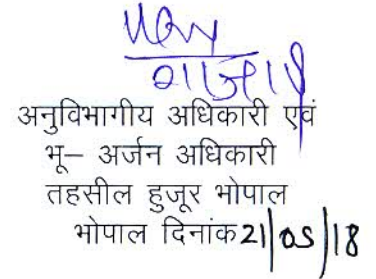 अनुविभागीय अधिकारी एवं
भू– अर्जन अधिकारी
तहसील हुजूर भोपाल
भोपाल दिनांक 21/05/18